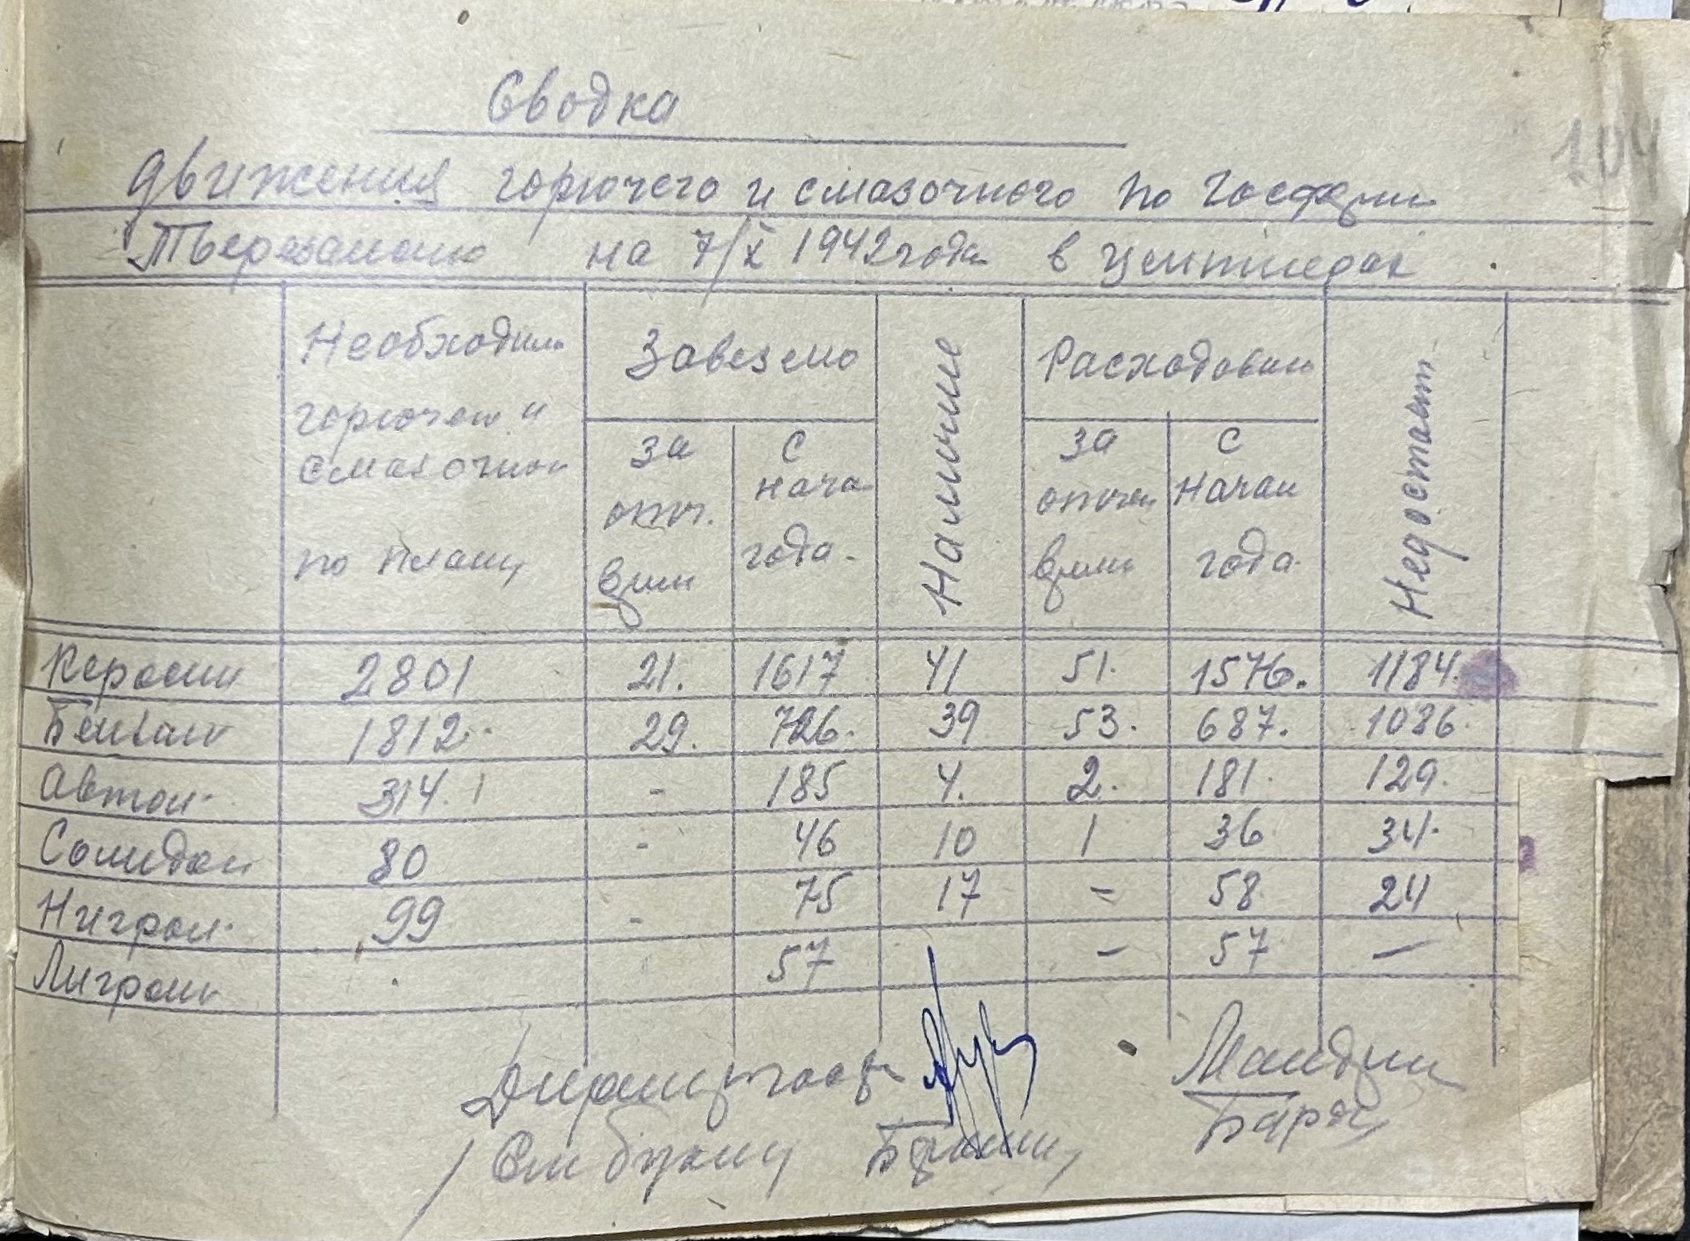 Сводка
движения горючего и смазочного по
на 7/X 1942 года в
104
Необходим
горючем и
смазочном
по плану
Завезено
за
отч.
врем
с
нача
года.
Наличие
Расходован
за
отчет
врем
с
начал
года.
Недостает
Керосин 2801 21. 1617 41 51. 1576. 1184.
Бензин 1812. 29. 726. 39 53. 687. 1086.
Автол. 314. - 185 4. 2. 181. 129.
Солидол 80 - 46 10 1 36 34.
Нигрол. 99 - 75 17 - 58. 24
Лигроин 57 - 57 —